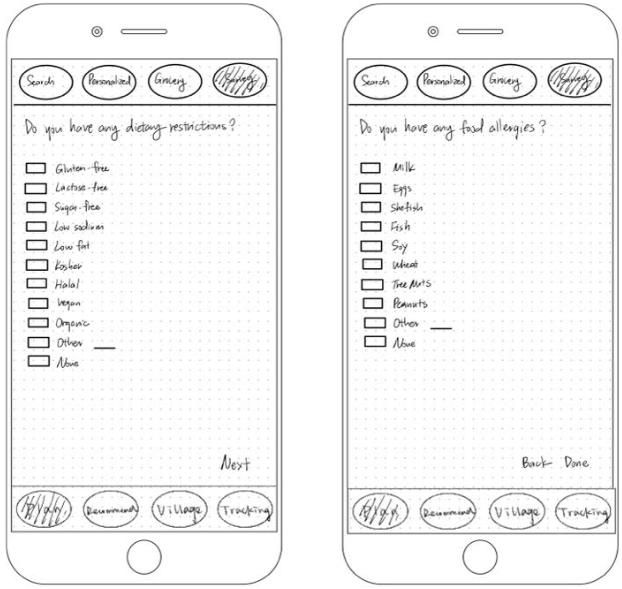 Search Personalized Grocery Survey
Do you have any dietary restrictions?
Gluten-free
Lactose-free
Sugar-free
Low sodium
Low fat
Kosher
Halal
Vegan
Organic
Other
None
Next
Plan Recommend Village Tracking
Search Personalized Grocery Survey
Do you have any food allergies?
Milk
Eggs
Shefish
Fish
Soy
Wheat
Tree Nuts
Peanuts
Other
None
Back Done
Plan Recommend Village Tracking